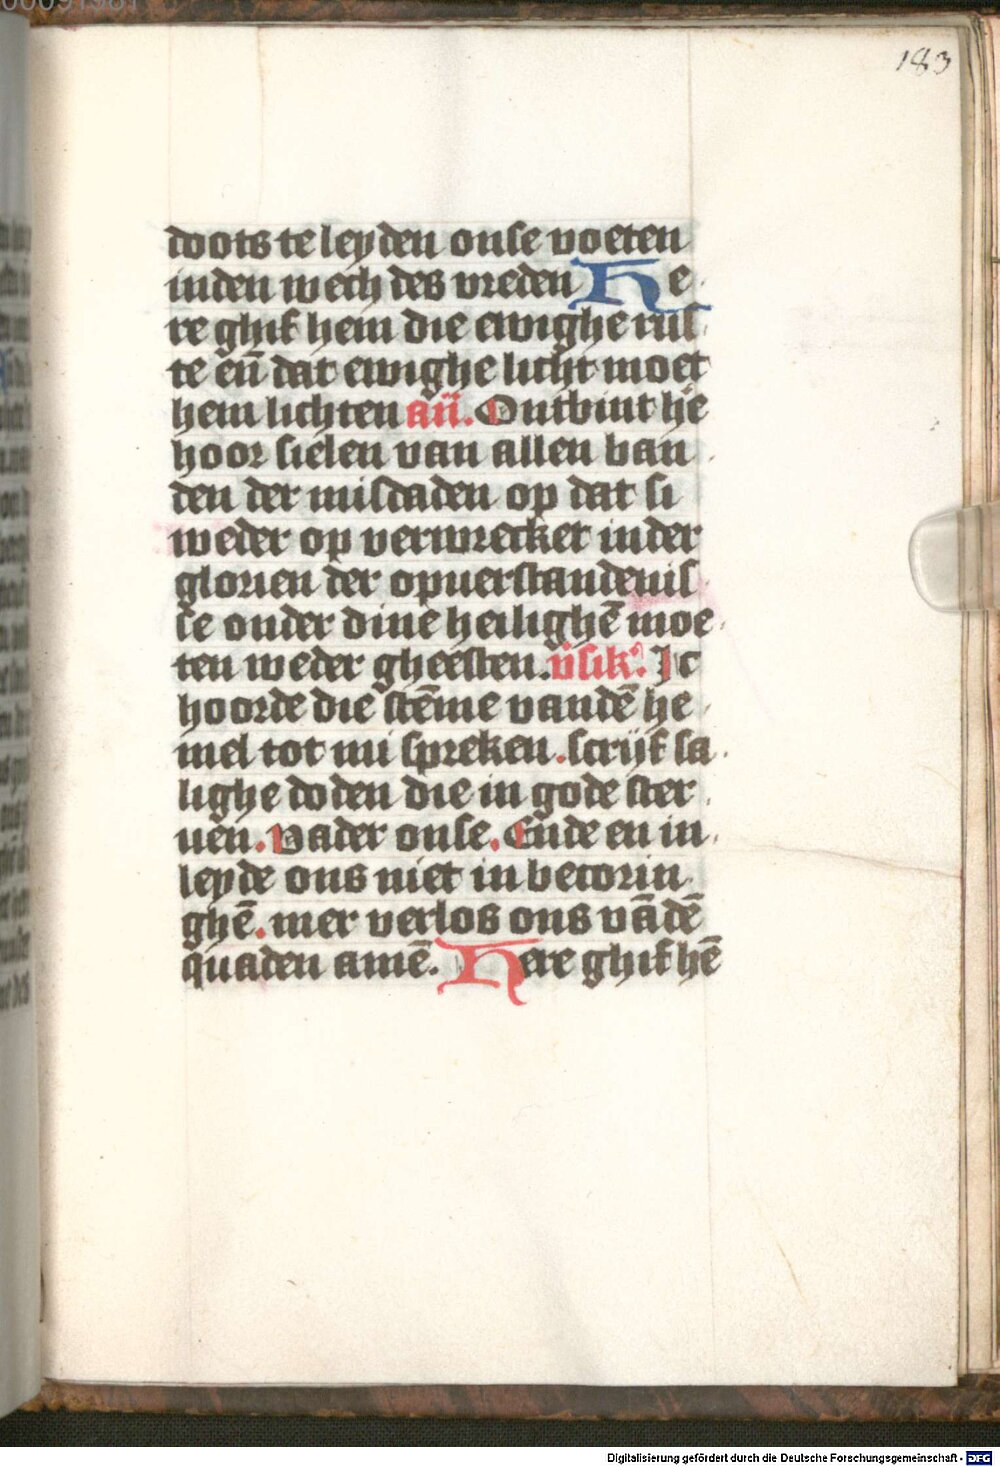 183
doots te leyden onse voeten
inden wech des vreden He
re ghif hem die ewighe rus
te en̄ dat ewighe licht moet
hem lichten an̄. Ontbint hē
hoor sielen van allen ban
den der misdaden op dat si
weder op verwrecket inder
glorien der opuerstandenis
se onder dine heilighē moe
ten weder gheesten. v̄sikꝰ. Ic
hoorde die stēme vandē he
mel tot mi spreken. scrijf sa
lighe doden die in gode ster
uen. Vader onse. Ende en in
leyde ons niet in becorin
ghē. mer verlos ons vādē
quaden amē. Here ghif hē
Digitalisierung gefördert durch die Deutsche Forschungsgemeinschaft - DFG